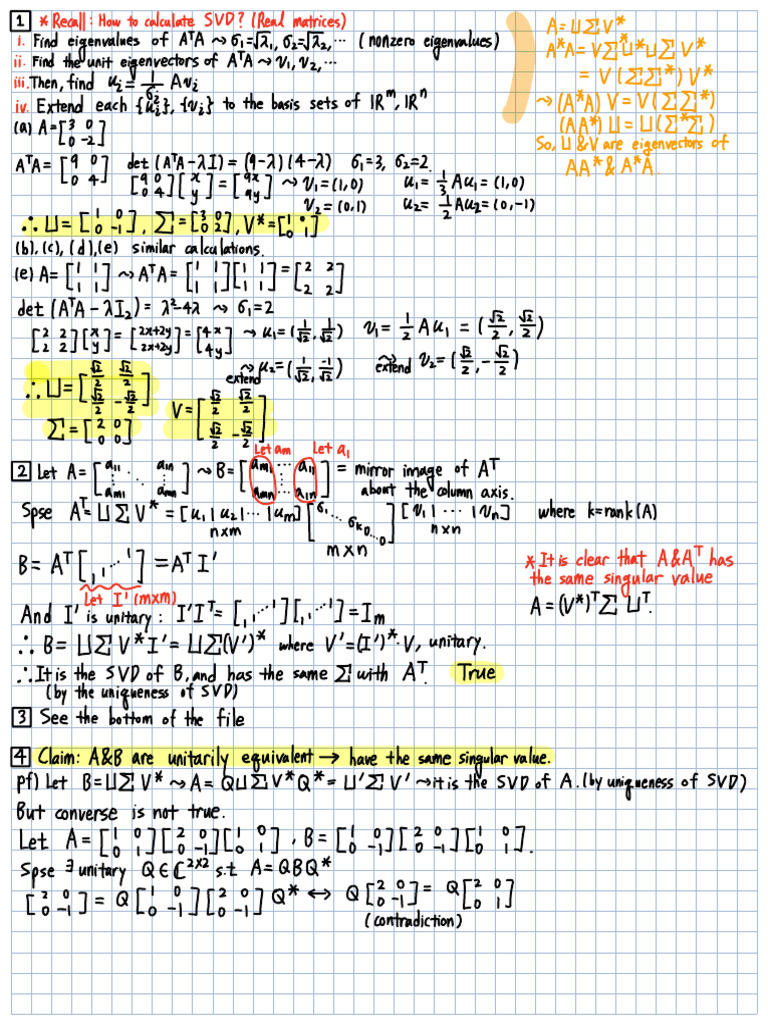 1 * Recall: How to calculate SVD? (Real matrices)
i. Find eigenvalues of AᵀA ⤳ σ₁=√λ₁, σ₂=√λ₂, ⋯ (nonzero eigenvalues)
ii. Find the unit eigenvectors of AᵀA ⤳ v₁, v₂, ⋯
iii. Then, find uᵢ = 1/σᵢ Avᵢ
iv. Extend each {uᵢ}, {vᵢ} to the basis sets of ℝᵐ, ℝⁿ
A = UΣV*
A*A = VΣ*U*UΣV*
= V(ΣΣ*)V*
⤳ (A*A)V = V(ΣΣ*)
(AA*)U = U(Σ*Σ)
So, U & V are eigenvectors of
AA* & A*A.
(a) A = [3 0; 0 -2]
AᵀA = [9 0; 0 4] det(AᵀA-λI) = (9-λ)(4-λ) σ₁=3, σ₂=2
[9 0; 0 4][x; y] = [9x; 9y] ⤳ v₁=(1,0) u₁ = 1/3 Au₁ = (1,0)
v₂=(0,1) u₂ = 1/2 Au₂ = (0,-1)
∴ U = [1 0; 0 -1], Σ = [3 0; 0 2], V* = [1 0; 0 1]
(b), (c), (d), (e) similar calculations.
(e) A = [1 1; 1 1] ⤳ AᵀA = [1 1; 1 1][1 1; 1 1] = [2 2; 2 2]
det(AᵀA - λI₂) = λ²-4λ ⤳ σ₁=2
[2 2; 2 2][x; y] = [2x+2y; 2x+2y] = [4x; 4y] ⤳ u₁ = (1/√2, 1/√2) v₁ = 1/2 Au₁ = (√2/2, √2/2)
⤳ extend u₂ = (1/√2, -1/√2) ⤳ extend v₂ = (√2/2, -√2/2)
∴ U = [√2/2 √2/2; √2/2 -√2/2] V = [√2/2 √2/2; √2/2 -√2/2]
Σ = [2 0; 0 0]
Let am Let a₁
2 Let A = [a₁₁ ⋯ a₁ₙ; aₘ₁ ⋯ aₘₙ] ⤳ B = [aₘ₁ ⋯ a₁₁; aₘₙ ⋯ a₁ₙ] = mirror image of Aᵀ
about the column axis.
Spse Aᵀ = UΣV* = [u₁|u₂|⋯|uₘ] [σ₁ ⋱ σₖ 0 ⋱ 0] [v₁|⋯|vₙ] where k=rank(A)
n×m m×n n×n
B = Aᵀ [1 ⋰ 1] = Aᵀ I'
Let I' (m×m)
* It is clear that A & Aᵀ has
the same singular value
A = (V*)ᵀ Σ Uᵀ.
And I' is unitary: I'I'ᵀ = [1 ⋰ 1][1 ⋰ 1] = Iₘ
∴ B = UΣV*I' = UΣ(V')* where V' = (I')*·V, unitary.
∴ It is the SVD of B, and has the same Σ with Aᵀ. True
(by the uniqueness of SVD)
3 See the bottom of the file
4 Claim: A&B are unitarily equivalent → have the same singular value.
pf) Let B = UΣV* ⤳ A = QUΣV*Q* = U'ΣV' ⤳ it is the SVD of A. (by uniqueness of SVD)
But converse is not true.
Let A = [1 0; 0 1][2 0; 0 -1][1 0; 0 1], B = [1 0; 0 -1][2 0; 0 -1][1 0; 0 1].
Spse ∃ unitary Q ∈ ℂ²ˣ² s.t A = QBQ*
[2 0; 0 -1] = Q[1 0; 0 -1][2 0; 0 -1]Q* ↔ Q[2 0; 0 -1] = Q[2 0; 0 1]
(contradiction)